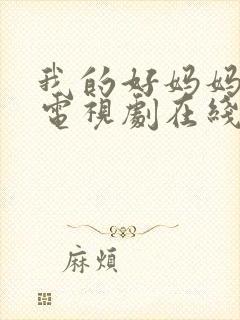 我的好妈妈
電視劇在綫
麻煩